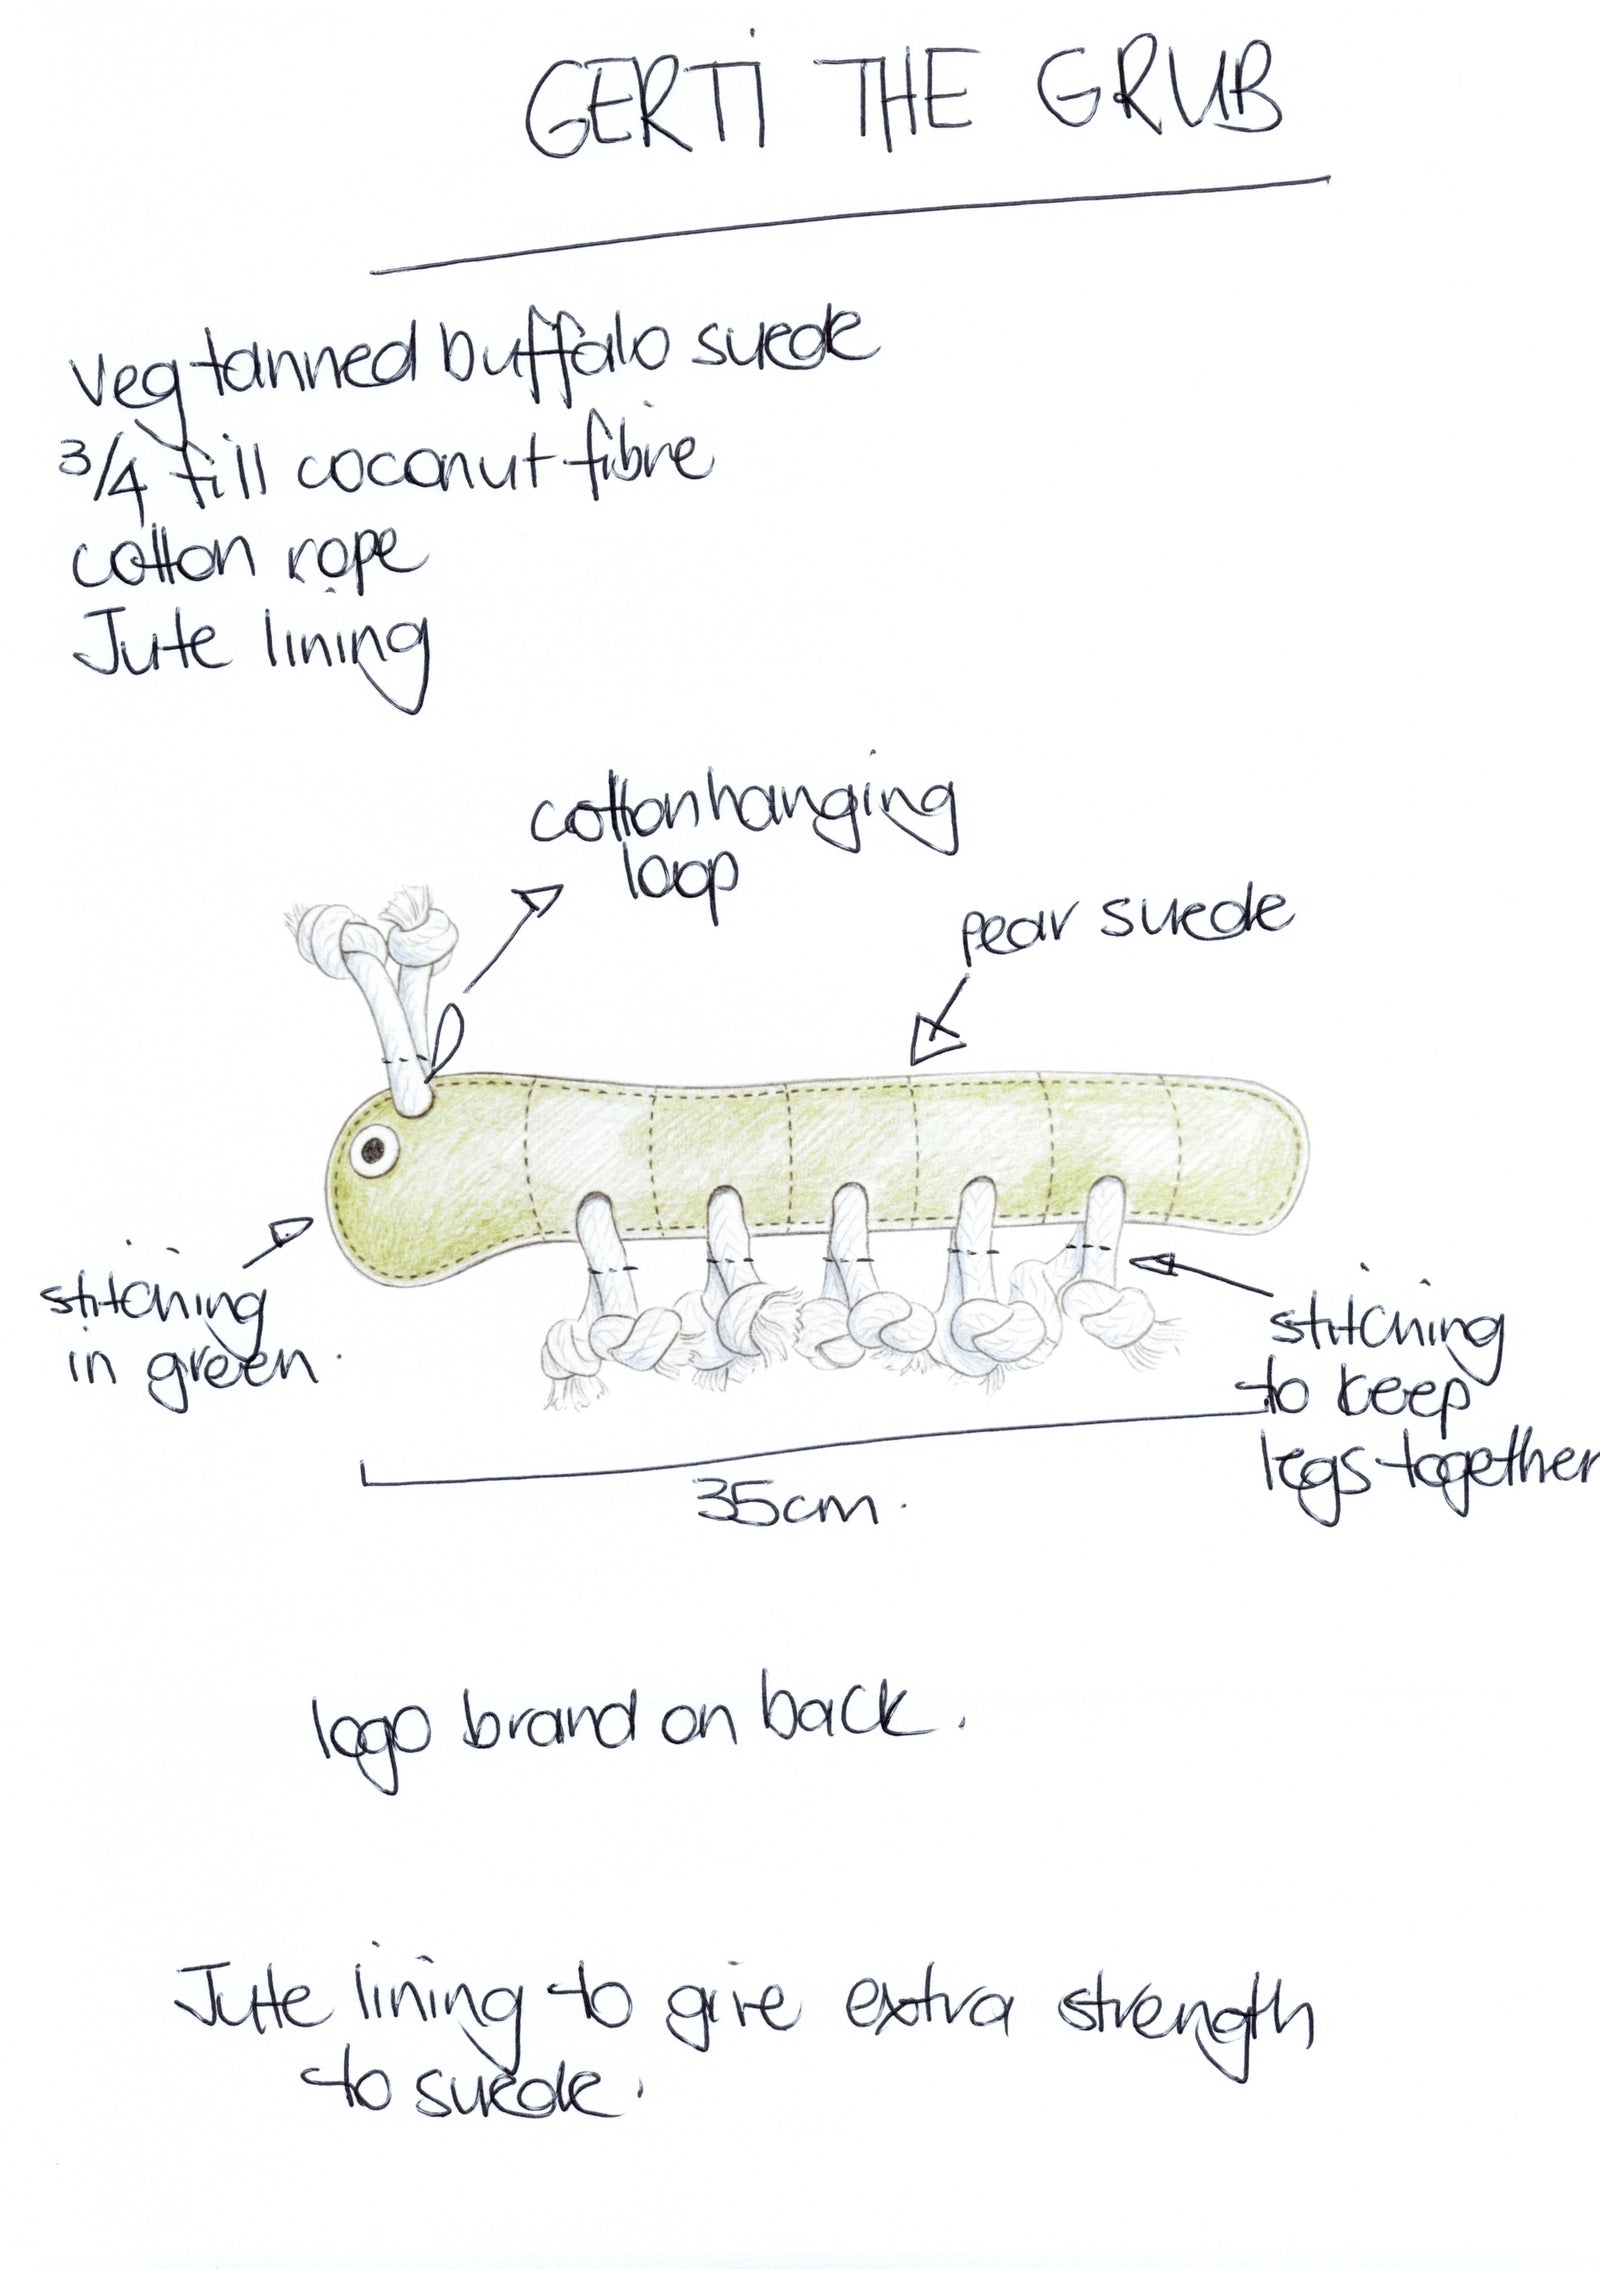 GERTi THE GRUB
veg tanned buffalo suede
3/4 fill coconut fibre
cotton rope
Jute lining
cotton hanging
loop
pear suede
stitching
in green.
stitching
to keep
legs together
35cm.
logo brand on back.
Jute lining to give extra strength
to suede.